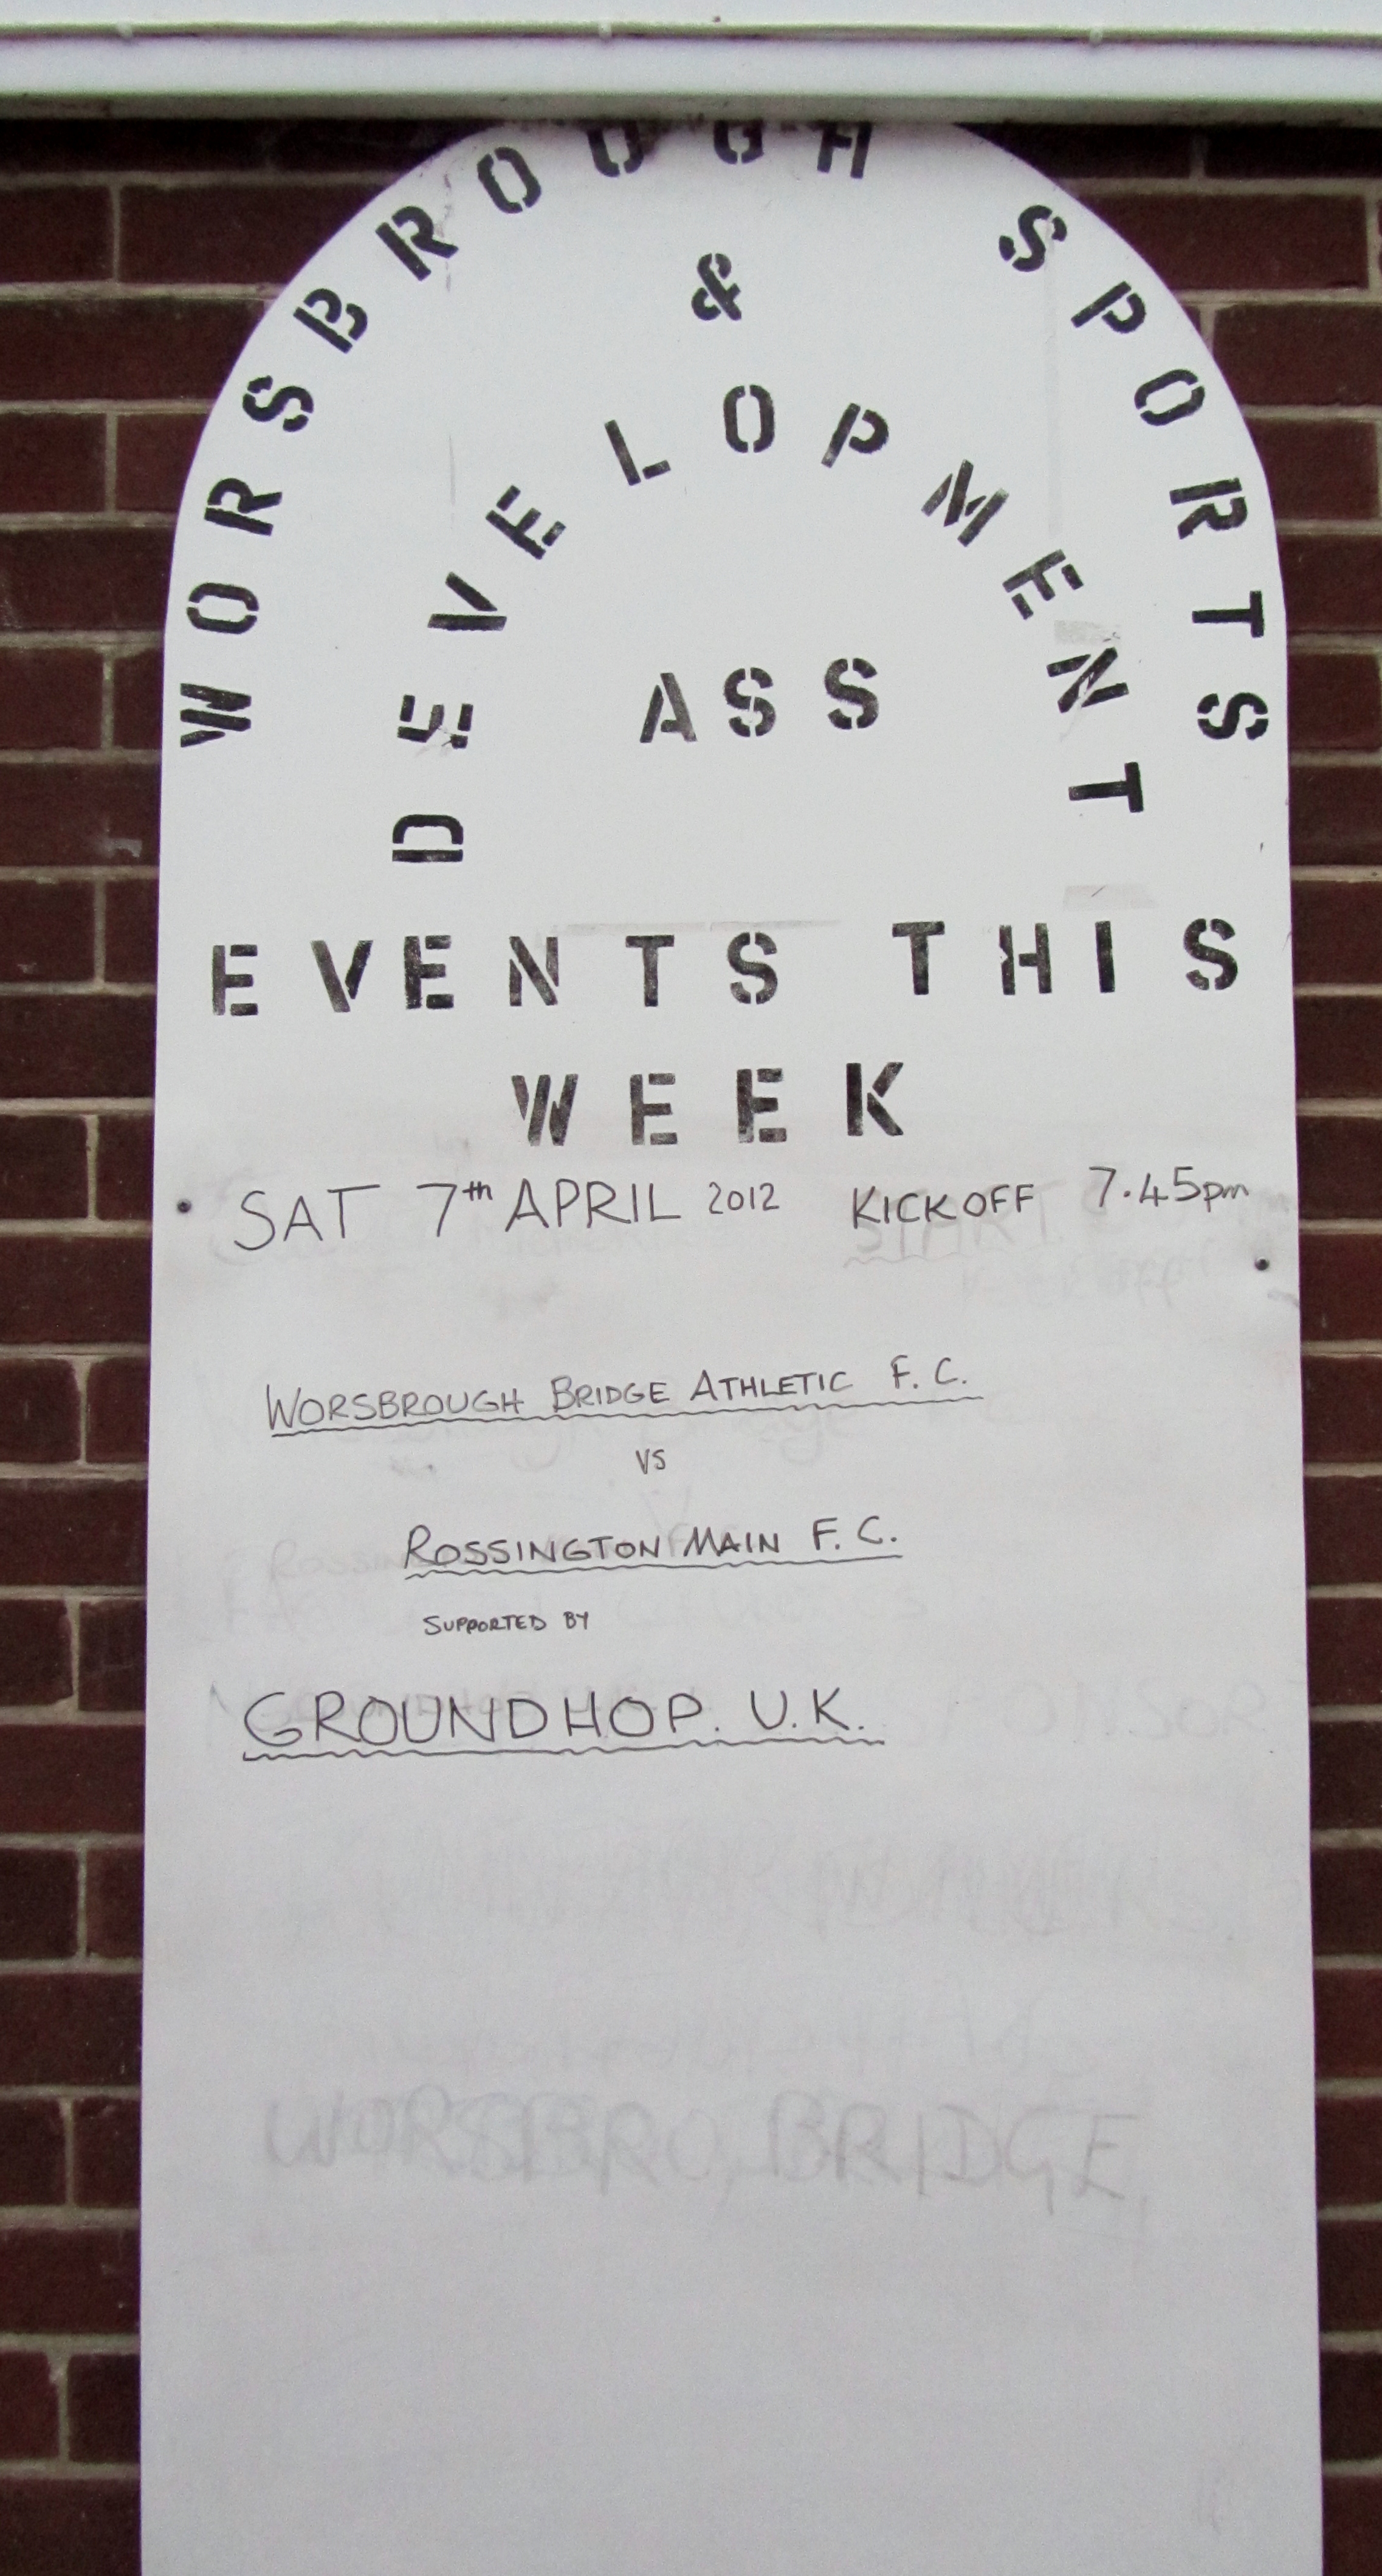 WORSBROUGH SPORTS
&
DEVELOPMENT
ASS
EVENTS THIS
WEEK
SAT 7th APRIL 2012 KICKOFF 7.45pm
WORSBROUGH BRIDGE ATHLETIC F.C.
VS
ROSSINGTON MAIN F.C.
SUPPORTED BY
GROUNDHOP. U.K.
WORSBRO, BRIDGE